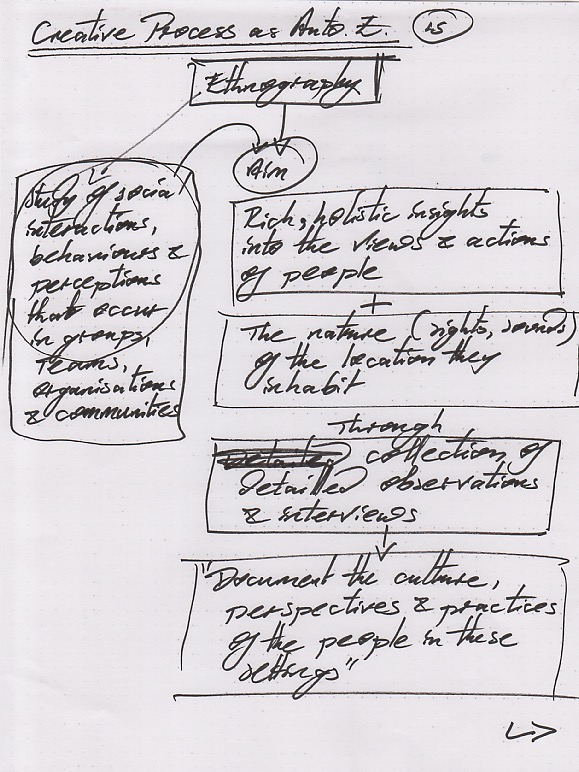 Creative Process as Auto. E.
Ethnography
Aim
Study of social
interactions,
behaviours &
perceptions
that occur
in groups,
teams,
organisations
& communities
Rich, holistic insights
into the views & actions
of people
+
The nature (sights, sounds)
of the location they
inhabit
Through
Detailed collection of
detailed observations
& interviews
"Document the culture,
perspectives & practices
of the people in these
settings"